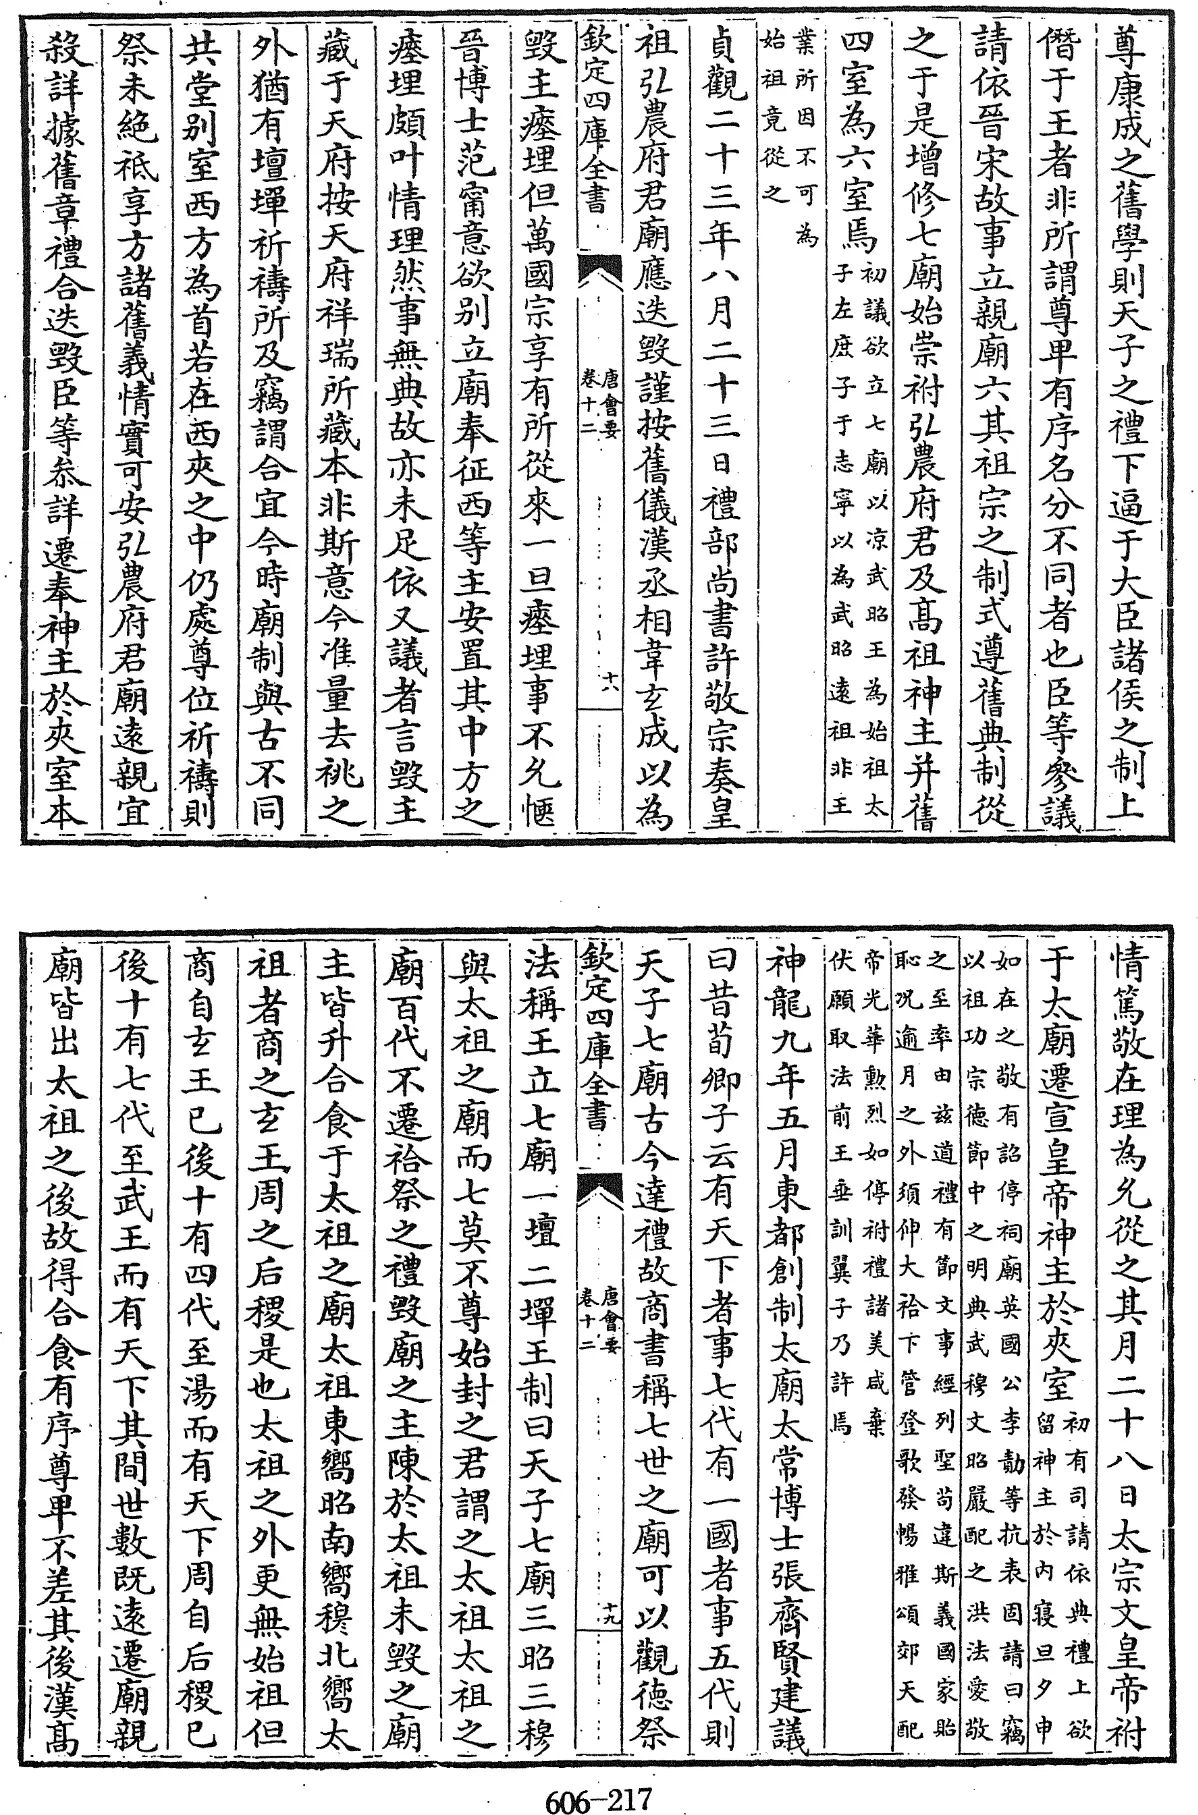 尊康成之舊學則天子之禮下逼于大臣諸侯之制上
僭于王者非所謂尊卑有序名分不同者也臣等參議
請依晉宋故事立親廟六其祖宗之制式遵舊典制從
之于是增修七廟始崇祔弘農府君及髙祖神主并舊
四室為六室焉初議欲立七廟以凉武昭王為始祖太
子左庶子于志寧以為武昭逺祖非王
業所因不可為
始祖竟從之
貞觀二十三年八月二十三日禮部尚書許敬宗奏皇
祖弘農府君廟應迭毀謹按舊儀漢丞相韋玄成以為
欽定四庫全書
唐會要
卷十二
十六
毀主瘞埋但萬國宗享有所從來一旦瘞埋事不允愜
晉博士范甯意欲别立廟奉征西等主安置其中方之
瘞埋頗叶情理然事無典故亦未足依又議者言毀主
藏于天府按天府祥瑞所藏本非斯意今准量去祧之
外猶有壇墠祈禱所及竊謂合宜今時廟制與古不同
共堂别室西方為首若在西夾之中仍處尊位祈禱則
祭未絶祗享方諸舊義情實可安弘農府君廟逺親宜
殺詳據舊章禮合迭毀臣等叅詳遷奉神主於夾室本
情篤敬在理為允從之其月二十八日太宗文皇帝祔
于太廟遷宣皇帝神主於夾室初有司請依典禮上欲
留神主於内寢旦夕申
如在之敬有詔停祠廟英國公李勣等抗表固請曰竊
以祖功宗德節中之明典武穆文昭嚴配之洪法愛敬
之至率由兹道禮有節文事經列聖茍違斯義國家貽
恥况逾月之外須伸大祫下管登歌發暢雅頌郊天配
帝光華勲烈如停祔禮諸美咸棄
伏願取法前王垂訓翼子乃許焉
神龍九年五月東都創制太廟太常博士張齊賢建議
曰昔荀卿子云有天下者事七代有一國者事五代則
天子七廟古今達禮故商書稱七世之廟可以觀德祭
欽定四庫全書
唐會要
卷十二
十九
法稱王立七廟一壇二墠王制曰天子七廟三昭三穆
與太祖之廟而七莫不尊始封之君謂之太祖太祖之
廟百代不遷祫祭之禮毀廟之主陳於太祖未毀之廟
主皆升合食于太祖之廟太祖東嚮昭南嚮穆北嚮太
祖者商之玄王周之后稷是也太祖之外更無始祖但
商自玄王已後十有四代至湯而有天下周自后稷已
後十有七代至武王而有天下其間世數既逺遷廟親
廟皆出太祖之後故得合食有序尊卑不差其後漢髙
606-217